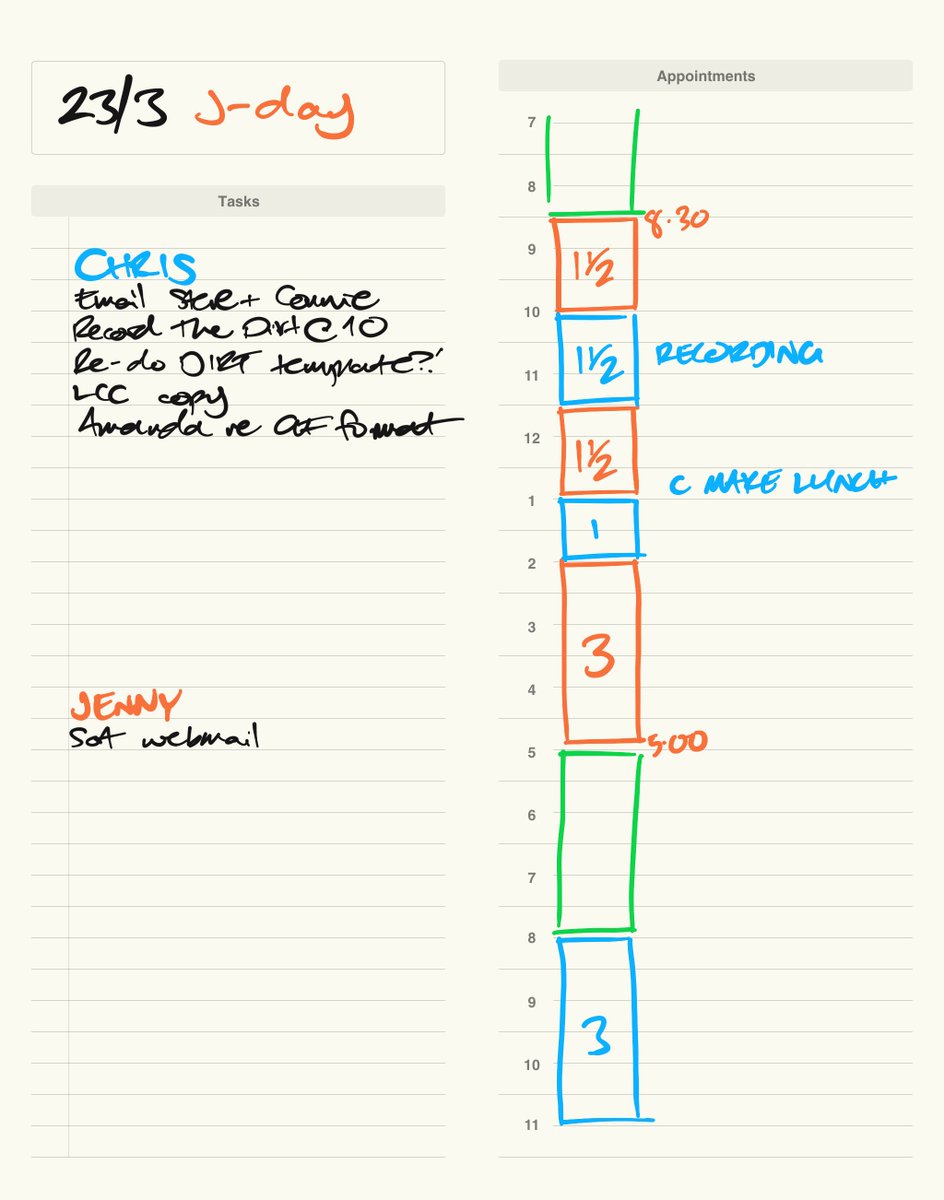 23/3 J-day
Tasks
CHRIS
Email Steve + Connie
Record the Dirt @ 10
Re-do DIRT template?!
LCC copy
Amanda re GF format
JENNY
SoA webmail
Appointments
7
8
8.30
9
1½
10
1½ RECORDING
11
12
1½
C MAKE LUNCH
1
1
2
3
3
4
5.00
5
6
7
8
9
3
10
11